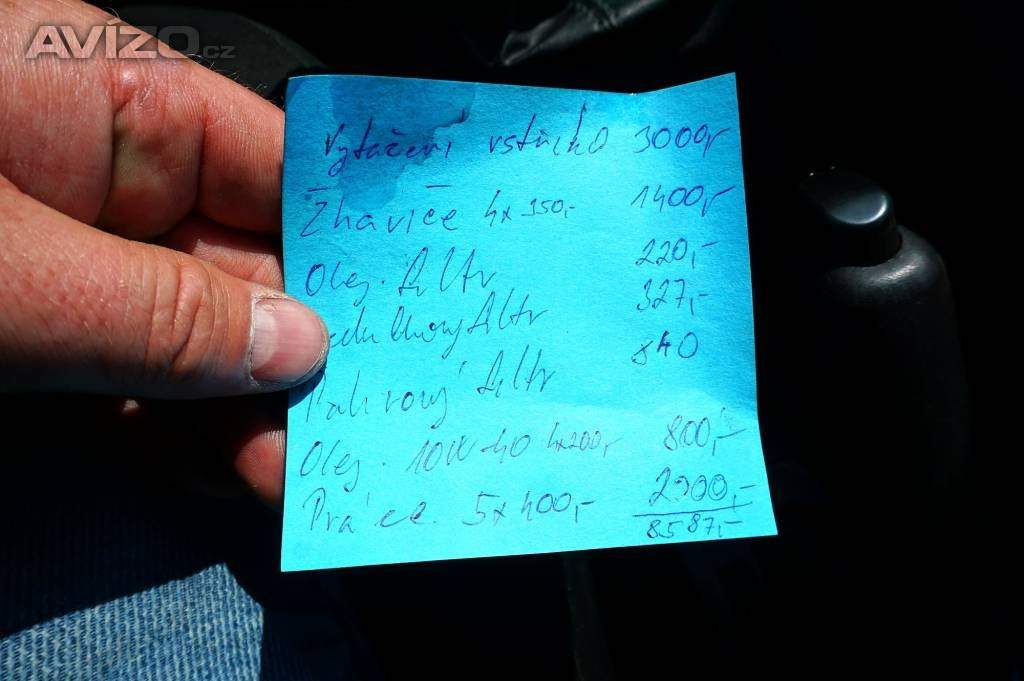 AVÍZO.cz
Vytáčení vstřiků 3000,-
Žhaviče 4x350,- 1400,-
Olej. filtr 220,-
filtr 327,-
Palivový filtr 840
Olej. 10W-40 4x200,- 800,-
Práce. 5x400,- 2000,-
8587,-